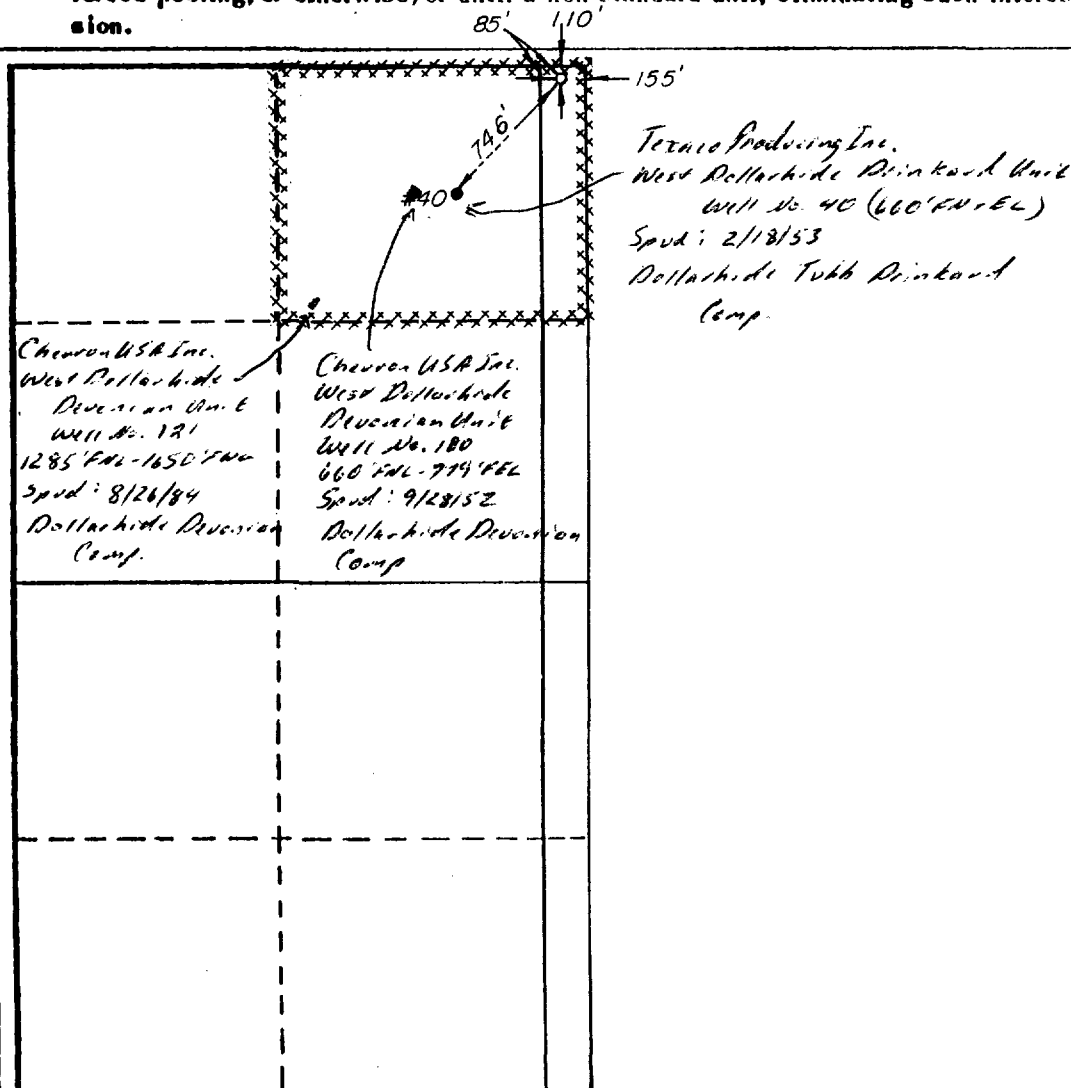 sion.
85'
110'
155'
746'
#40
Texaco Producing Inc.
West Dollarhide Drinkard Unit
Well No. 40 (660' FN & EL)
Spud: 2/18/53
Dollarhide Tubb Drinkard
Comp.
Chevron USA Inc.
West Dollarhide
Devonian Unit
Well No. 121
1285' FNL - 1650' FWL
Spud: 8/26/84
Dollarhide Devonian
Comp.
Chevron USA Inc.
West Dollarhide
Devonian Unit
Well No.
660' FNL - 779' FEL
Spud: 9/28/52
Dollarhide Devonian
Comp